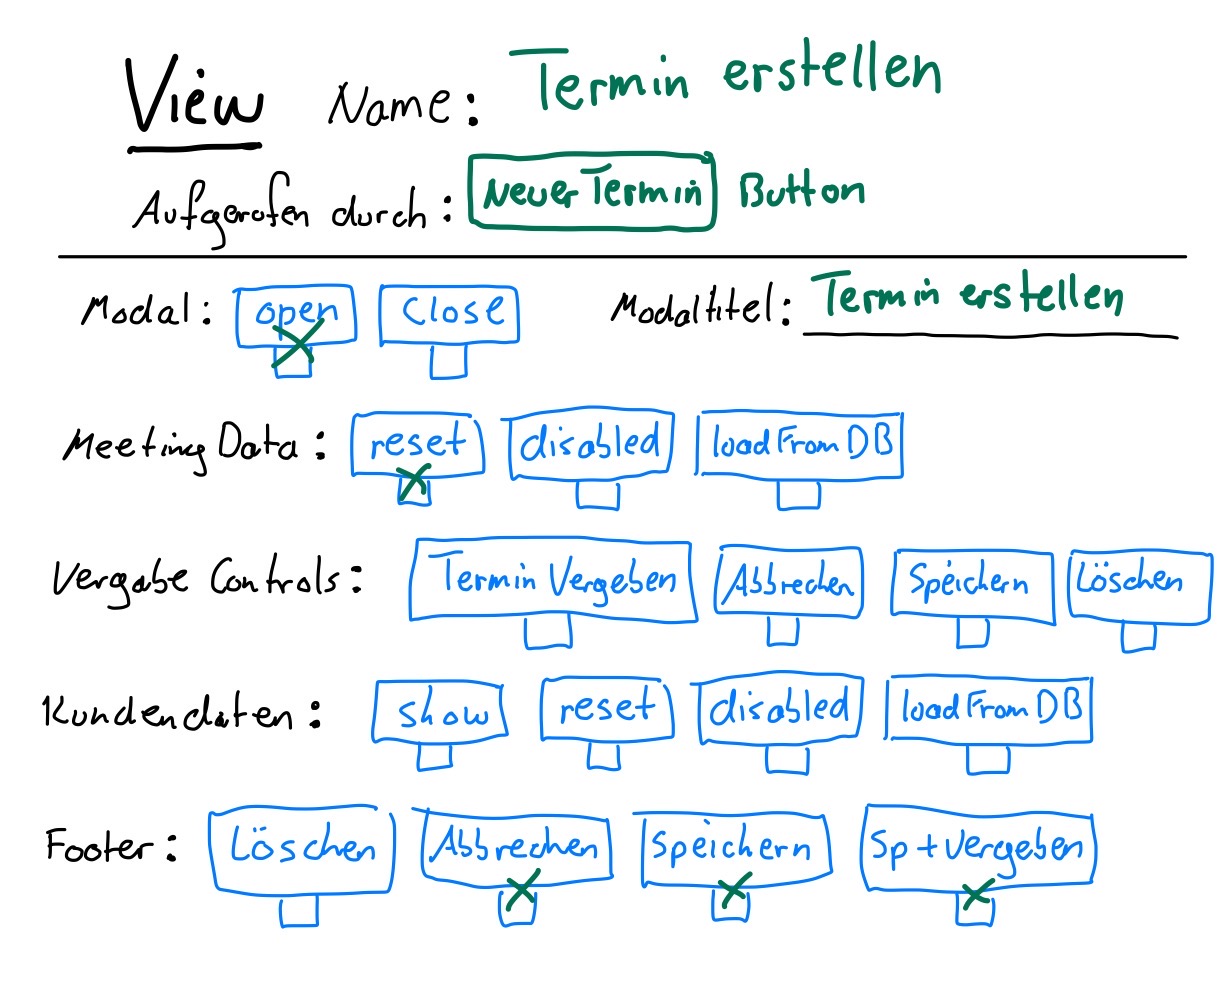 View Name: Termin erstellen
Aufgerufen durch: Neuer Termin Button
Modal: open Close Modaltitel: Termin erstellen
Meeting Data: reset disabled loadFromDB
Vergabe Controls: Termin Vergeben Abbrechen Speichern Löschen
Kundendaten: show reset disabled loadFromDB
Footer: Löschen Abbrechen Speichern Sp+Vergeben